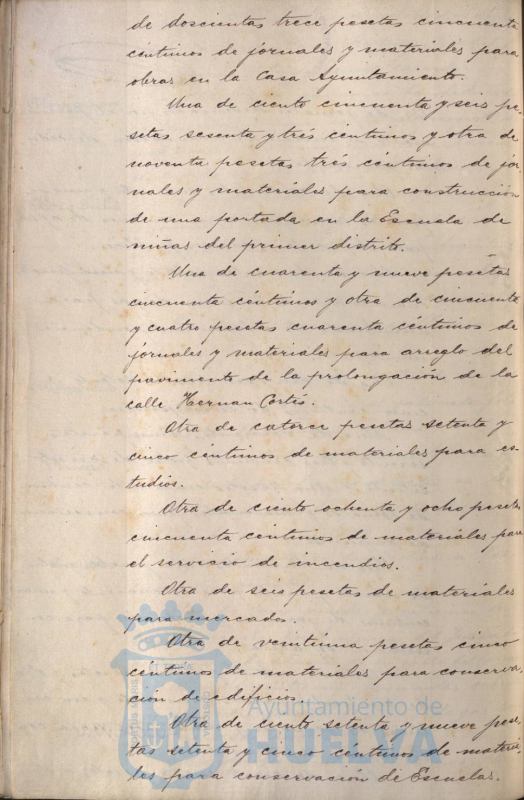 de doscientas trece pesetas cincuenta
céntimos de jornales y materiales para
obras en la Casa Ayuntamiento.
Una de ciento cincuenta y seis pe-
setas sesenta y trés céntimos y otra de
noventa pesetas trés céntimos de jor-
nales y materiales para construcción
de una portada en la Escuela de
niñas del primer distrito.
Una de cuarenta y nueve pesetas
cincuenta céntimos y otra de cincuenta
y cuatro pesetas cuarenta céntimos de
jornales y materiales para arreglo del
pavimento de la prolongación de la
calle Hernan Cortés.
Otra de catorce pesetas setenta y
cinco céntimos de materiales para es-
tudios.
Otra de ciento ochenta y ocho pesetas
cincuenta céntimos de materiales para
el servicio de incendios.
Otra de seis pesetas de materiales
para mercados.
Otra de veintiuna pesetas cinco
céntimos de materiales para conserva-
ción de edificios.
Otra de ciento setenta y nueve pese-
tas setenta y cinco céntimos de materia-
les para conservación de Escuelas.
Ayuntamiento de
HUELVA